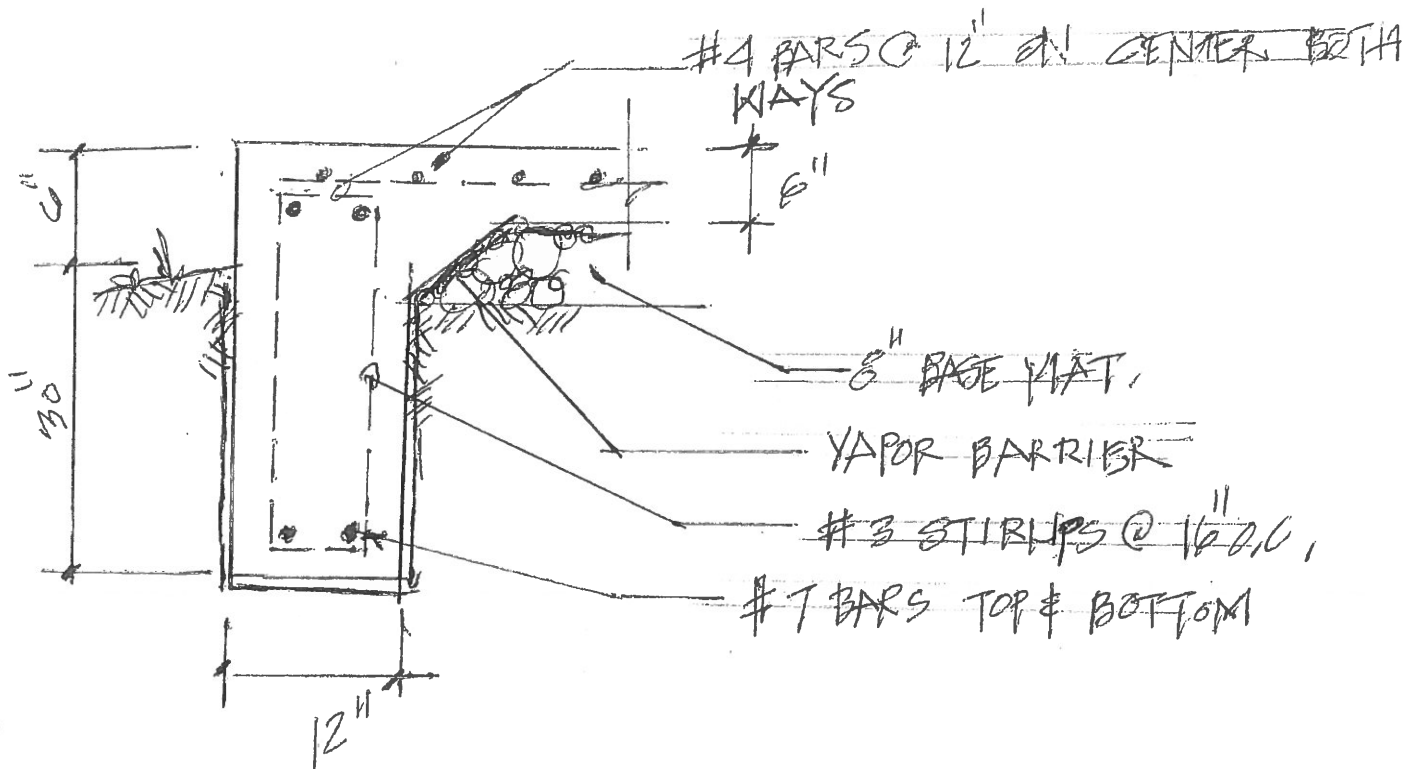 #4 BARS @ 12" ON CENTER BOTH
WAYS
6"
6"
30"
8" BASE MAT.
VAPOR BARRIER
#3 STIRUPS @ 16" O.C.
#7 BARS TOP & BOTTOM
12"